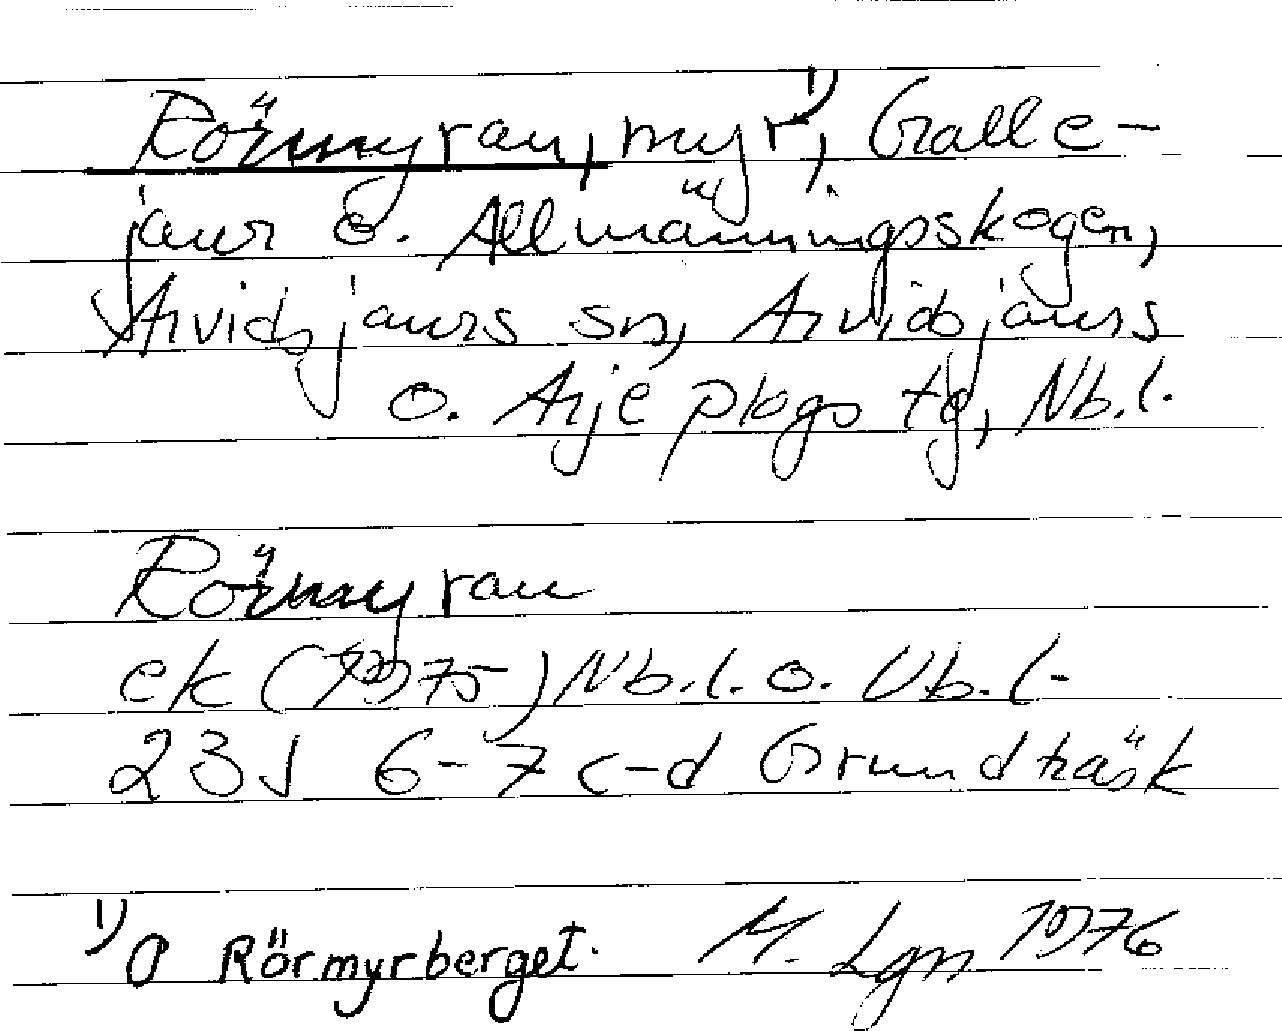 Rörmyran, myr 1), Galle-
jaur o. Allmänningsskogen,
Arvidsjaurs sn, Arvidsjaurs
o. Arjeplogs tg, Nb.l.
Rörmyran
ek (1975) Nb.l. o. Vb.l.
23J 6-7 c-d Grundträsk
1) O Rörmyrberget. M. Lgn 1976